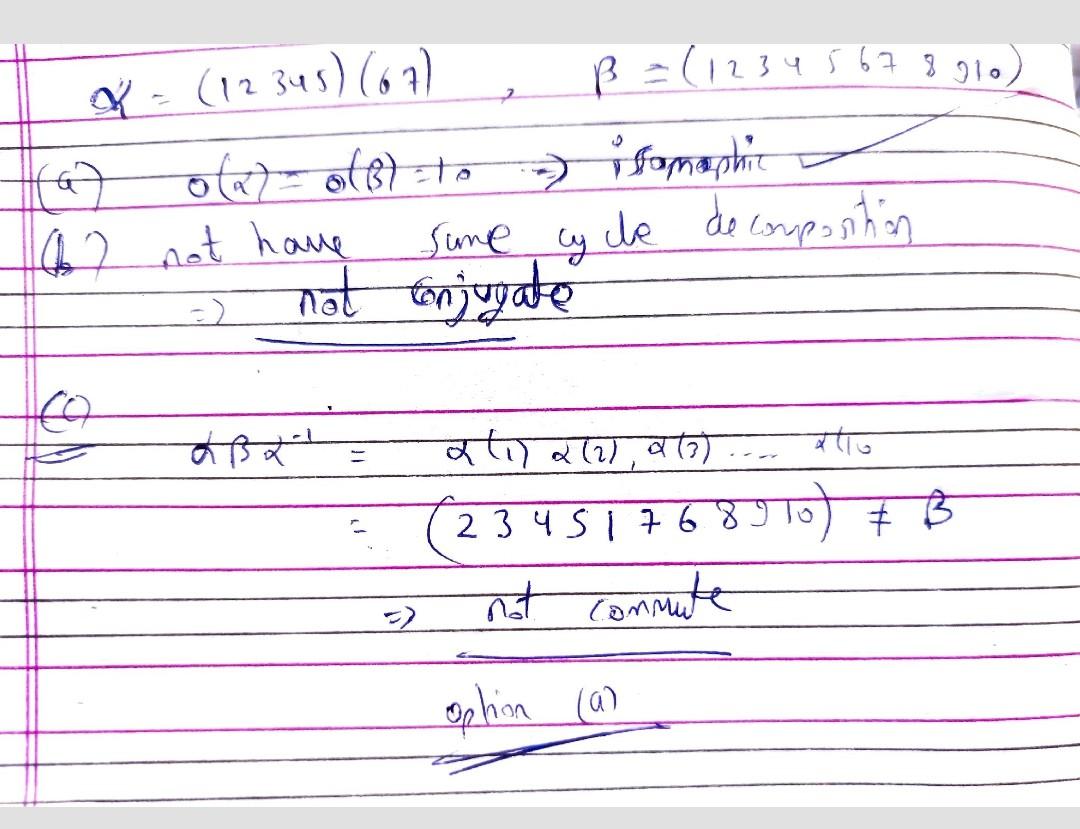 α = (1 2 3 4 5) (6 7) , β = (1 2 3 4 5 6 7 8 9 10)
(a) o(α) = o(β) = 10 => isomorphic ✓
(b) not have same cycle decomposition
=> not conjugate
(c)
αβα⁻¹ = α(1) α(2), α(3) .... α(10
= (2 3 4 5 1 7 6 8 9 10) ≠ β
=> not commute
option (a)